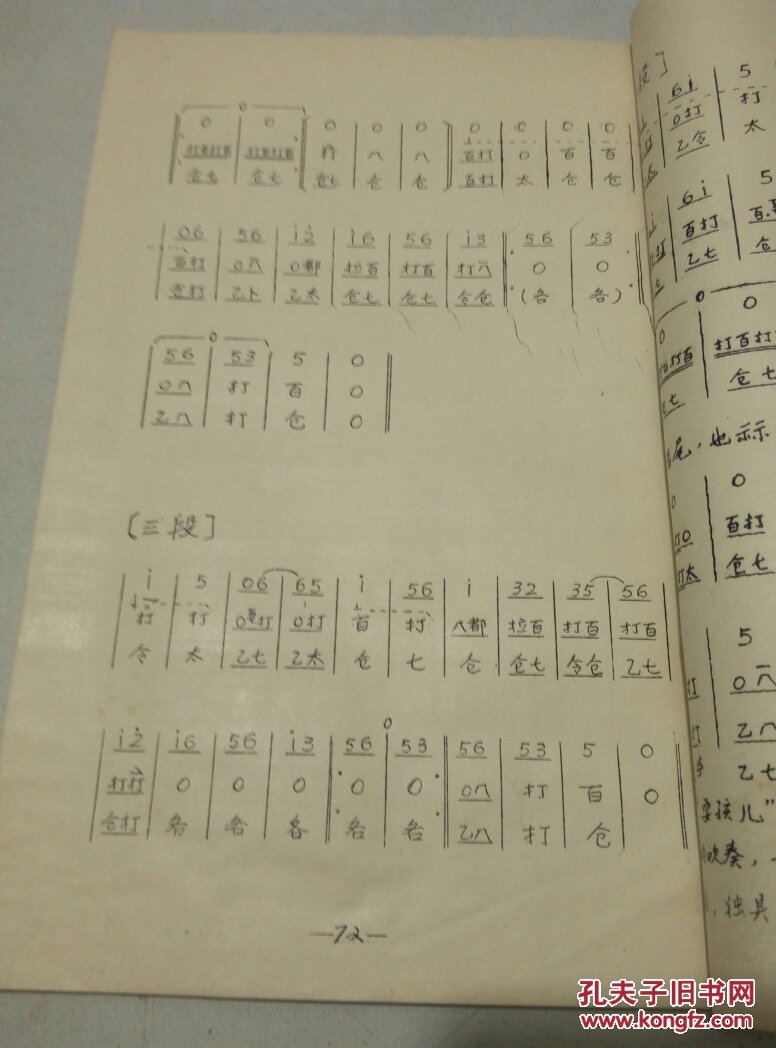 0
0 0 0 八 八 0 0 0 0
打百打百 打百打百 八 八 百打 0 百 百
仓七 仓七 仓七 仓 仓 百打 太 仓 仓
06 56 i2̇ i6 56 i3 56 53
百打 0八 0都 拉百 打百 打八 0 0
仓打 乙卜 乙太 仓七 仓七 令仓 (各 各)
0
56 53 5 0
0八 打 百 0
乙八 打 仓 0
[三段]
i 5 06 65 i 56 i 32 35 56
打 打 0打 百 打 八都 拉百 打百 打百
令 太 乙七 乙太 仓 七 仓 仓七 令仓 乙七
0
i2̇ i6 56 i3 56 53 56 53 5 0
打打 0 0 0 0 0 0八 打 百 0
仓打 各 各 各 各 各 乙八 打 仓
—72—
段]
6i 5
0打 打
乙令 太
6i 5
百打
乙七 仓
0
0 0
打百打百 打百打
仓七
尾，也示
0 0
打0 百打
打太 仓七
5
打 0八
打 乙八
乙七
耍孩儿”
吹奏，
独具
孔夫子旧书网
www.kongfz.com